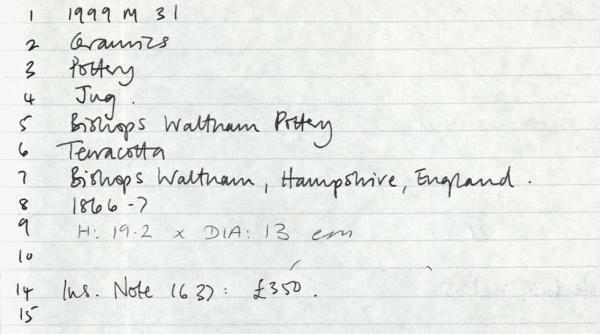 1 1999 M 31
2 Ceramics
3 Pottery
4 Jug.
5 Bishops Waltham Pottery
6 Terracotta
7 Bishops Waltham, Hampshire, England.
8 1866-7
9 H: 19.2 x DIA: 13 cm
10
14 Ins. Note (63): £350.
15